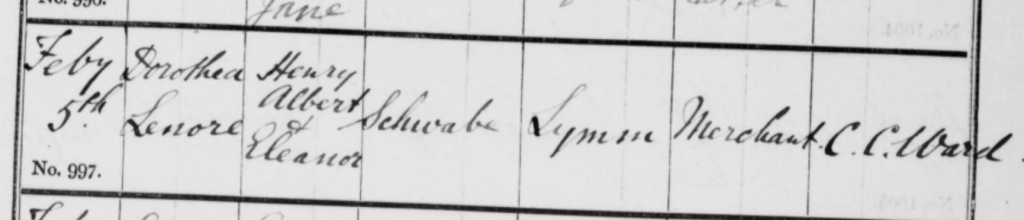 Jane
Feby
5th
No. 997.
Dorothea
Lenore
Henry
Albert
&
Eleanor
Schwabe
Lymm
Merchant.
C. C. Ward.